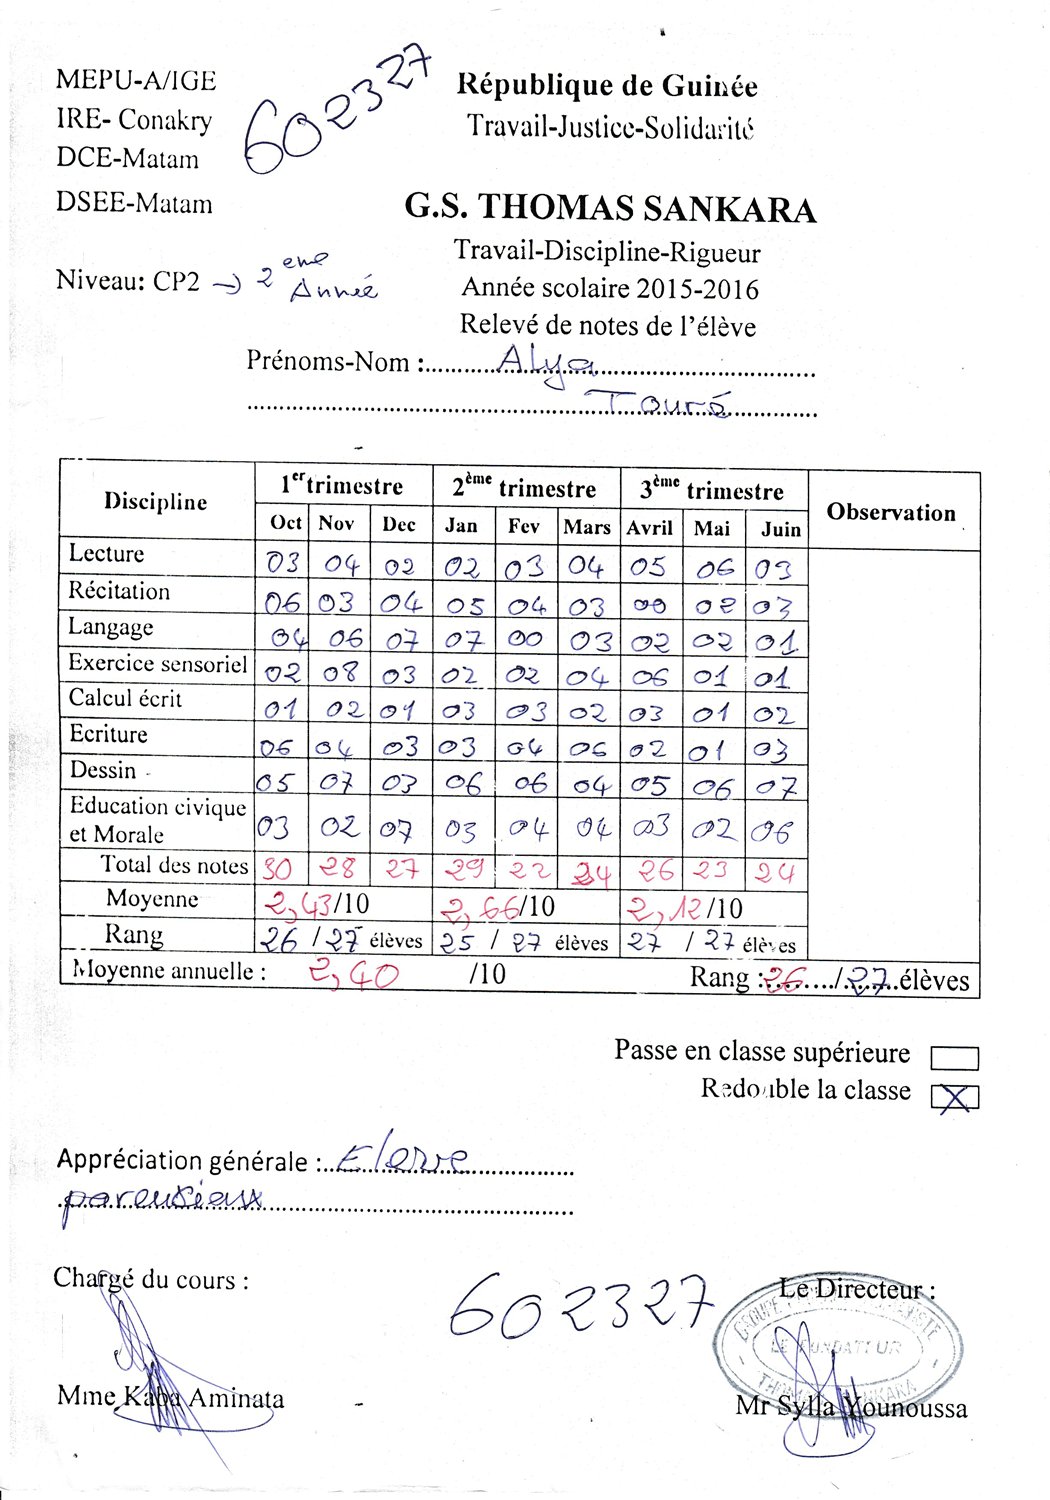 MEPU-A/IGE
IRE- Conakry
DCE-Matam
DSEE-Matam
602327
République de Guinée
Travail-Justice-Solidarité
G.S. THOMAS SANKARA
Travail-Discipline-Rigueur
Année scolaire 2015-2016
Relevé de notes de l'élève
Niveau: CP2 → 2 eme Année
Prénoms-Nom : Alya
Touré
Discipline 1er trimestre 2ème trimestre 3ème trimestre Observation
Oct Nov Dec Jan Fev Mars Avril Mai Juin
Lecture 03 04 02 02 03 04 05 06 03
Récitation 06 03 04 05 04 03 00 08 03
Langage 04 06 07 07 00 03 02 02 01
Exercice sensoriel 02 08 03 02 02 04 06 01 01
Calcul écrit 01 02 01 03 03 02 03 01 02
Ecriture 06 04 03 03 04 06 02 01 03
Dessin 05 07 03 06 06 04 05 06 07
Education civique
et Morale 03 02 07 03 04 04 03 02 06
Total des notes 30 28 27 29 22 24 26 23 24
Moyenne 2,43/10 2,66/10 2,12/10
Rang 26 / 27 élèves 25 / 27 élèves 27 / 27 élèves
Moyenne annuelle : 2,40 /10 Rang : 26 / 27 élèves
Passe en classe supérieure
Redouble la classe X
Appréciation générale : Eleve
pareusiaux
Chargé du cours :
602327
Le Directeur :
LE FONDATEUR
THOMAS SANKARA
Mme Kaba Aminata
Mr Sylla Younoussa